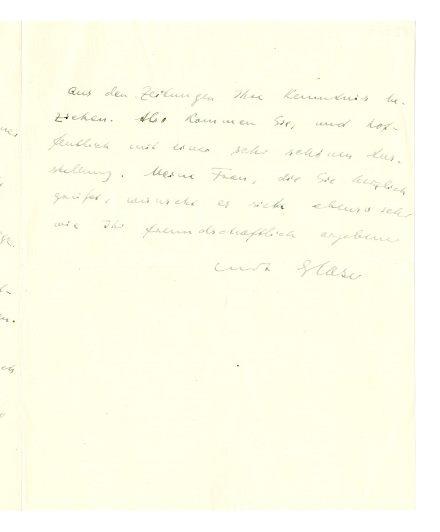 aus den Zeitungen Ihre Kenntnis be-
ziehen. Also kommen Sie, und hof-
fentlich mit einer sehr schönen Aus-
stellung. Meine Frau, die Sie herzlich
grüßt, wünscht es sich ebenso sehr
wie Ihr freundschaftlich ergebener
Curt Glaser